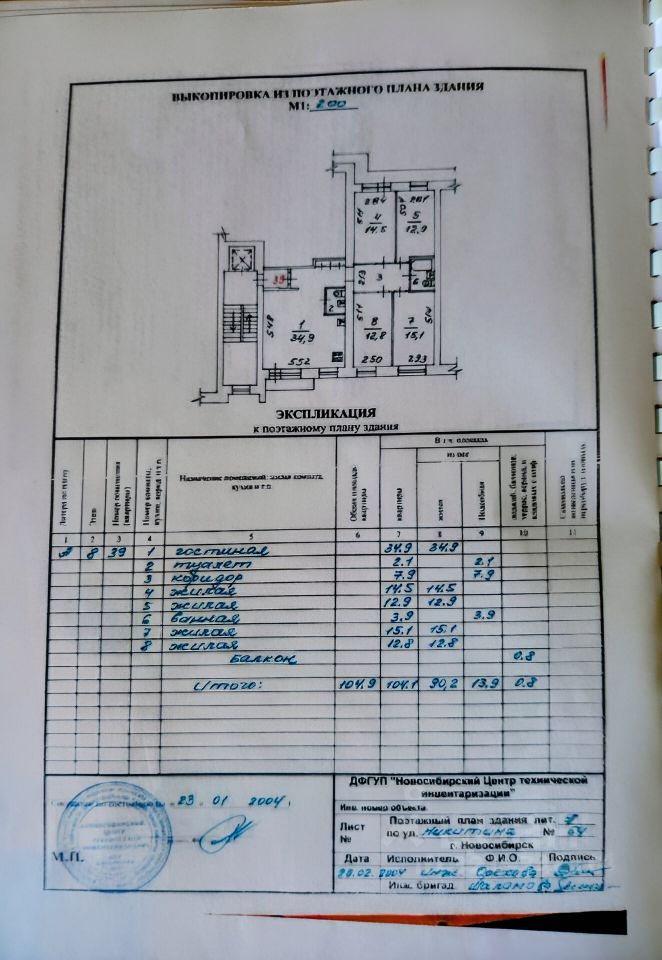 ВЫКОПИРОВКА ИЗ ПОЭТАЖНОГО ПЛАНА ЗДАНИЯ
М1: 200
284 281
511 507
4 5
14.5 12.9
39 213 3 6
2
548 511 514
1 8 7
34,9 12,8 15,1
552 250 293
ЭКСПЛИКАЦИЯ
к поэтажному плану здания
В т.ч. площадь
из нее
Этаж
Номер помещения (квартиры)
Номер комнаты, кухни, корид. и т.п.
Назначение помещений: жилая комната, кухня и т.п.
Общая площадь квартиры
квартиры
жилая
Подсобная
1 2 3 4 5 6 7 8 9 10 11
А 8 39 1 гостиная 34.9 34.9
2 туалет 2.1 2.1
3 коридор 7.9 7.9
4 жилая 14.5 14.5
5 жилая 12.9 12.9
6 ванная 3.9 3.9
7 жилая 15.1 15.1
8 жилая 12.8 12.8
Балкон 0.8
Итого: 104.9 104.1 90,2 13.9 0.8
ДФГУП "Новосибирский Центр технической инвентаризации"
Инв. номер объекта
23 . 01 2004г.
М.П.
Лист №
Поэтажный план здания лит.
по ул. Никитина № 64
г. Новосибирск
Дата Исполнитель Ф.И.О. Подпись
20.02.2004 инж.
Инж. бригад